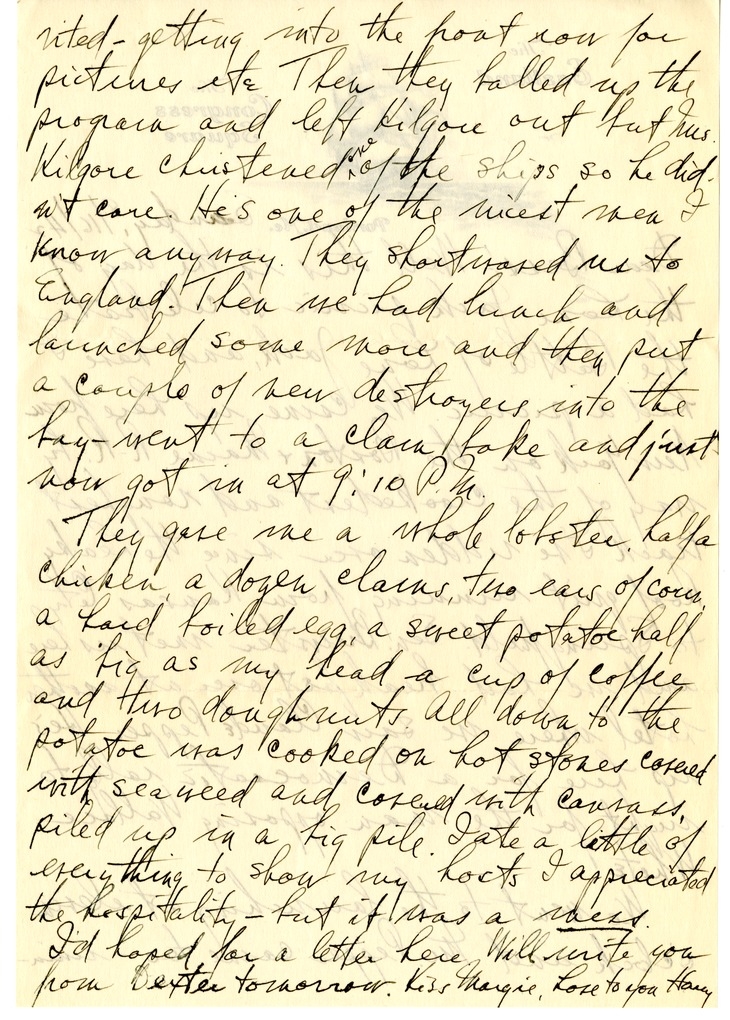 vited - getting into the front row for
pictures etc. Then they balled up the
program and left Kilgore out but Mrs.
Kilgore christened one of the ships so he did-
n't care. He's one of the nicest men I
know anyway. They shortwaved us to
England. Then we had lunch and
launched some more and then put
a couple of new destroyers into the
bay - went to a clam bake and just
now got in at 9:10 P.M.
They gave me a whole lobster, half a
chicken, a dozen clams, two ears of corn,
a hard boiled egg, a sweet potatoe half
as big as my head - a cup of coffee
and two doughnuts. All down to the
potatoe was cooked on hot stones covered
with seaweed and covered with canvass,
piled up in a big pile. I ate a little of
everything to show my hosts I appreciated
the hospitality - but it was a mess.
I'd hoped for a letter here. Will write you
from Dexter tomorrow. Kiss Margie, Love to you Harry